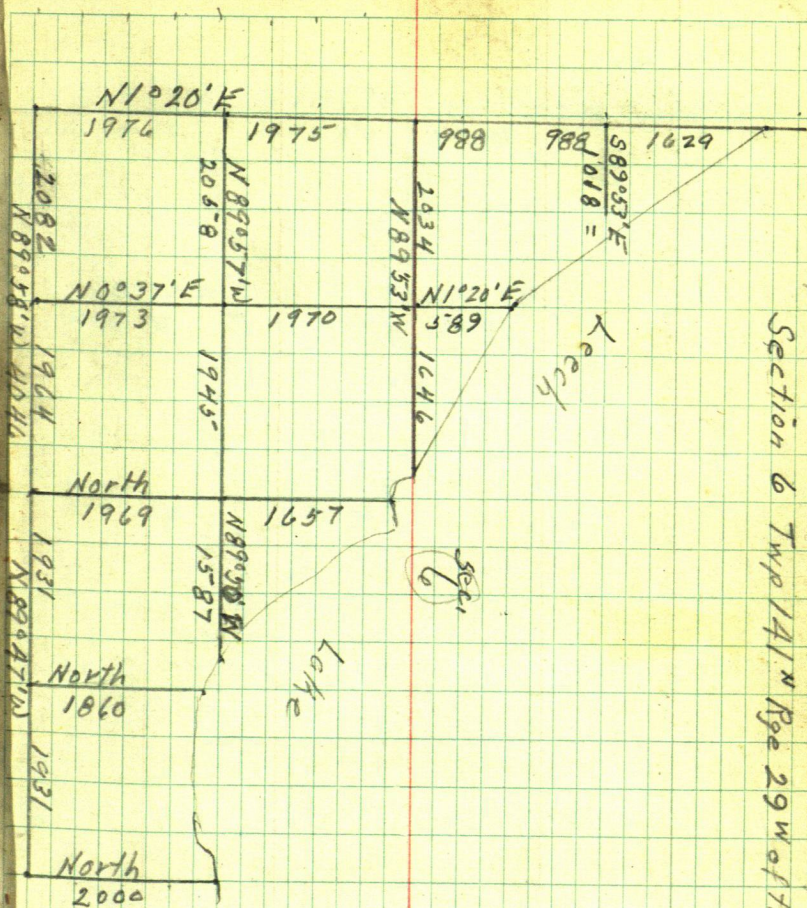 N1°20'E
1976
1975
988
988
1629
S89°53'E
1018 =
2082
N89°58'W
2058
N89°57'W
2034
N89°53'W
N0°37'E
1973
1970
N1°20'E
589
1964
4046
1945
1646
Leech
North
1969
1657
1931
N89°47'W
N89°50'W
1587
Sec.
6
Lake
North
1860
1931
North
2000
Section 6 Twp 141 N Rge 29 W of